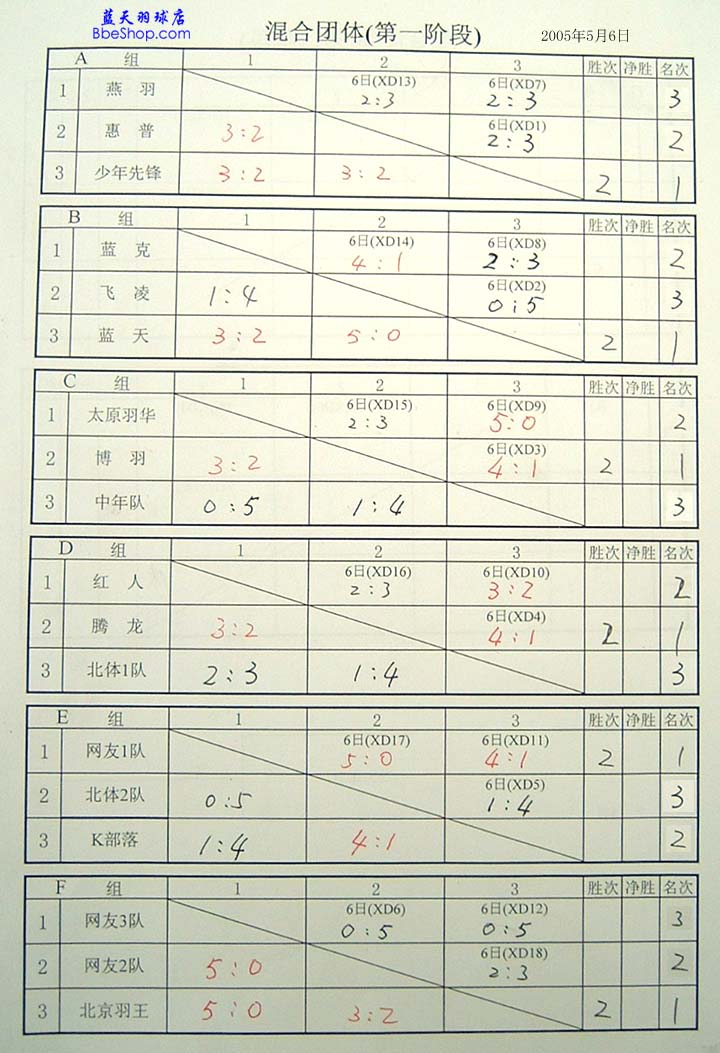 蓝天羽球店
BbeShop.com
混合团体(第一阶段)
2005年5月6日
A 组 1 2 3 胜次 净胜 名次
1 燕 羽 6日(XD13) 2:3 6日(XD7) 2:3 3
2 惠 普 3:2 6日(XD1) 2:3 2
3 少年先锋 3:2 3:2 2 1
B 组 1 2 3 胜次 净胜 名次
1 蓝 克 6日(XD14) 4:1 6日(XD8) 2:3 2
2 飞 凌 1:4 6日(XD2) 0:5 3
3 蓝 天 3:2 5:0 2 1
C 组 1 2 3 胜次 净胜 名次
1 太原羽华 6日(XD15) 2:3 6日(XD9) 5:0 2
2 博 羽 3:2 6日(XD3) 4:1 2 1
3 中年队 0:5 1:4 3
D 组 1 2 3 胜次 净胜 名次
1 红 人 6日(XD16) 2:3 6日(XD10) 3:2 2
2 腾 龙 3:2 6日(XD4) 4:1 2 1
3 北体1队 2:3 1:4 3
E 组 1 2 3 胜次 净胜 名次
1 网友1队 6日(XD17) 5:0 6日(XD11) 4:1 2 1
2 北体2队 0:5 6日(XD5) 1:4 3
3 K部落 1:4 4:1 2
F 组 1 2 3 胜次 净胜 名次
1 网友3队 6日(XD6) 0:5 6日(XD12) 0:5 3
2 网友2队 5:0 6日(XD18) 2:3 2
3 北京羽王 5:0 3:2 2 1